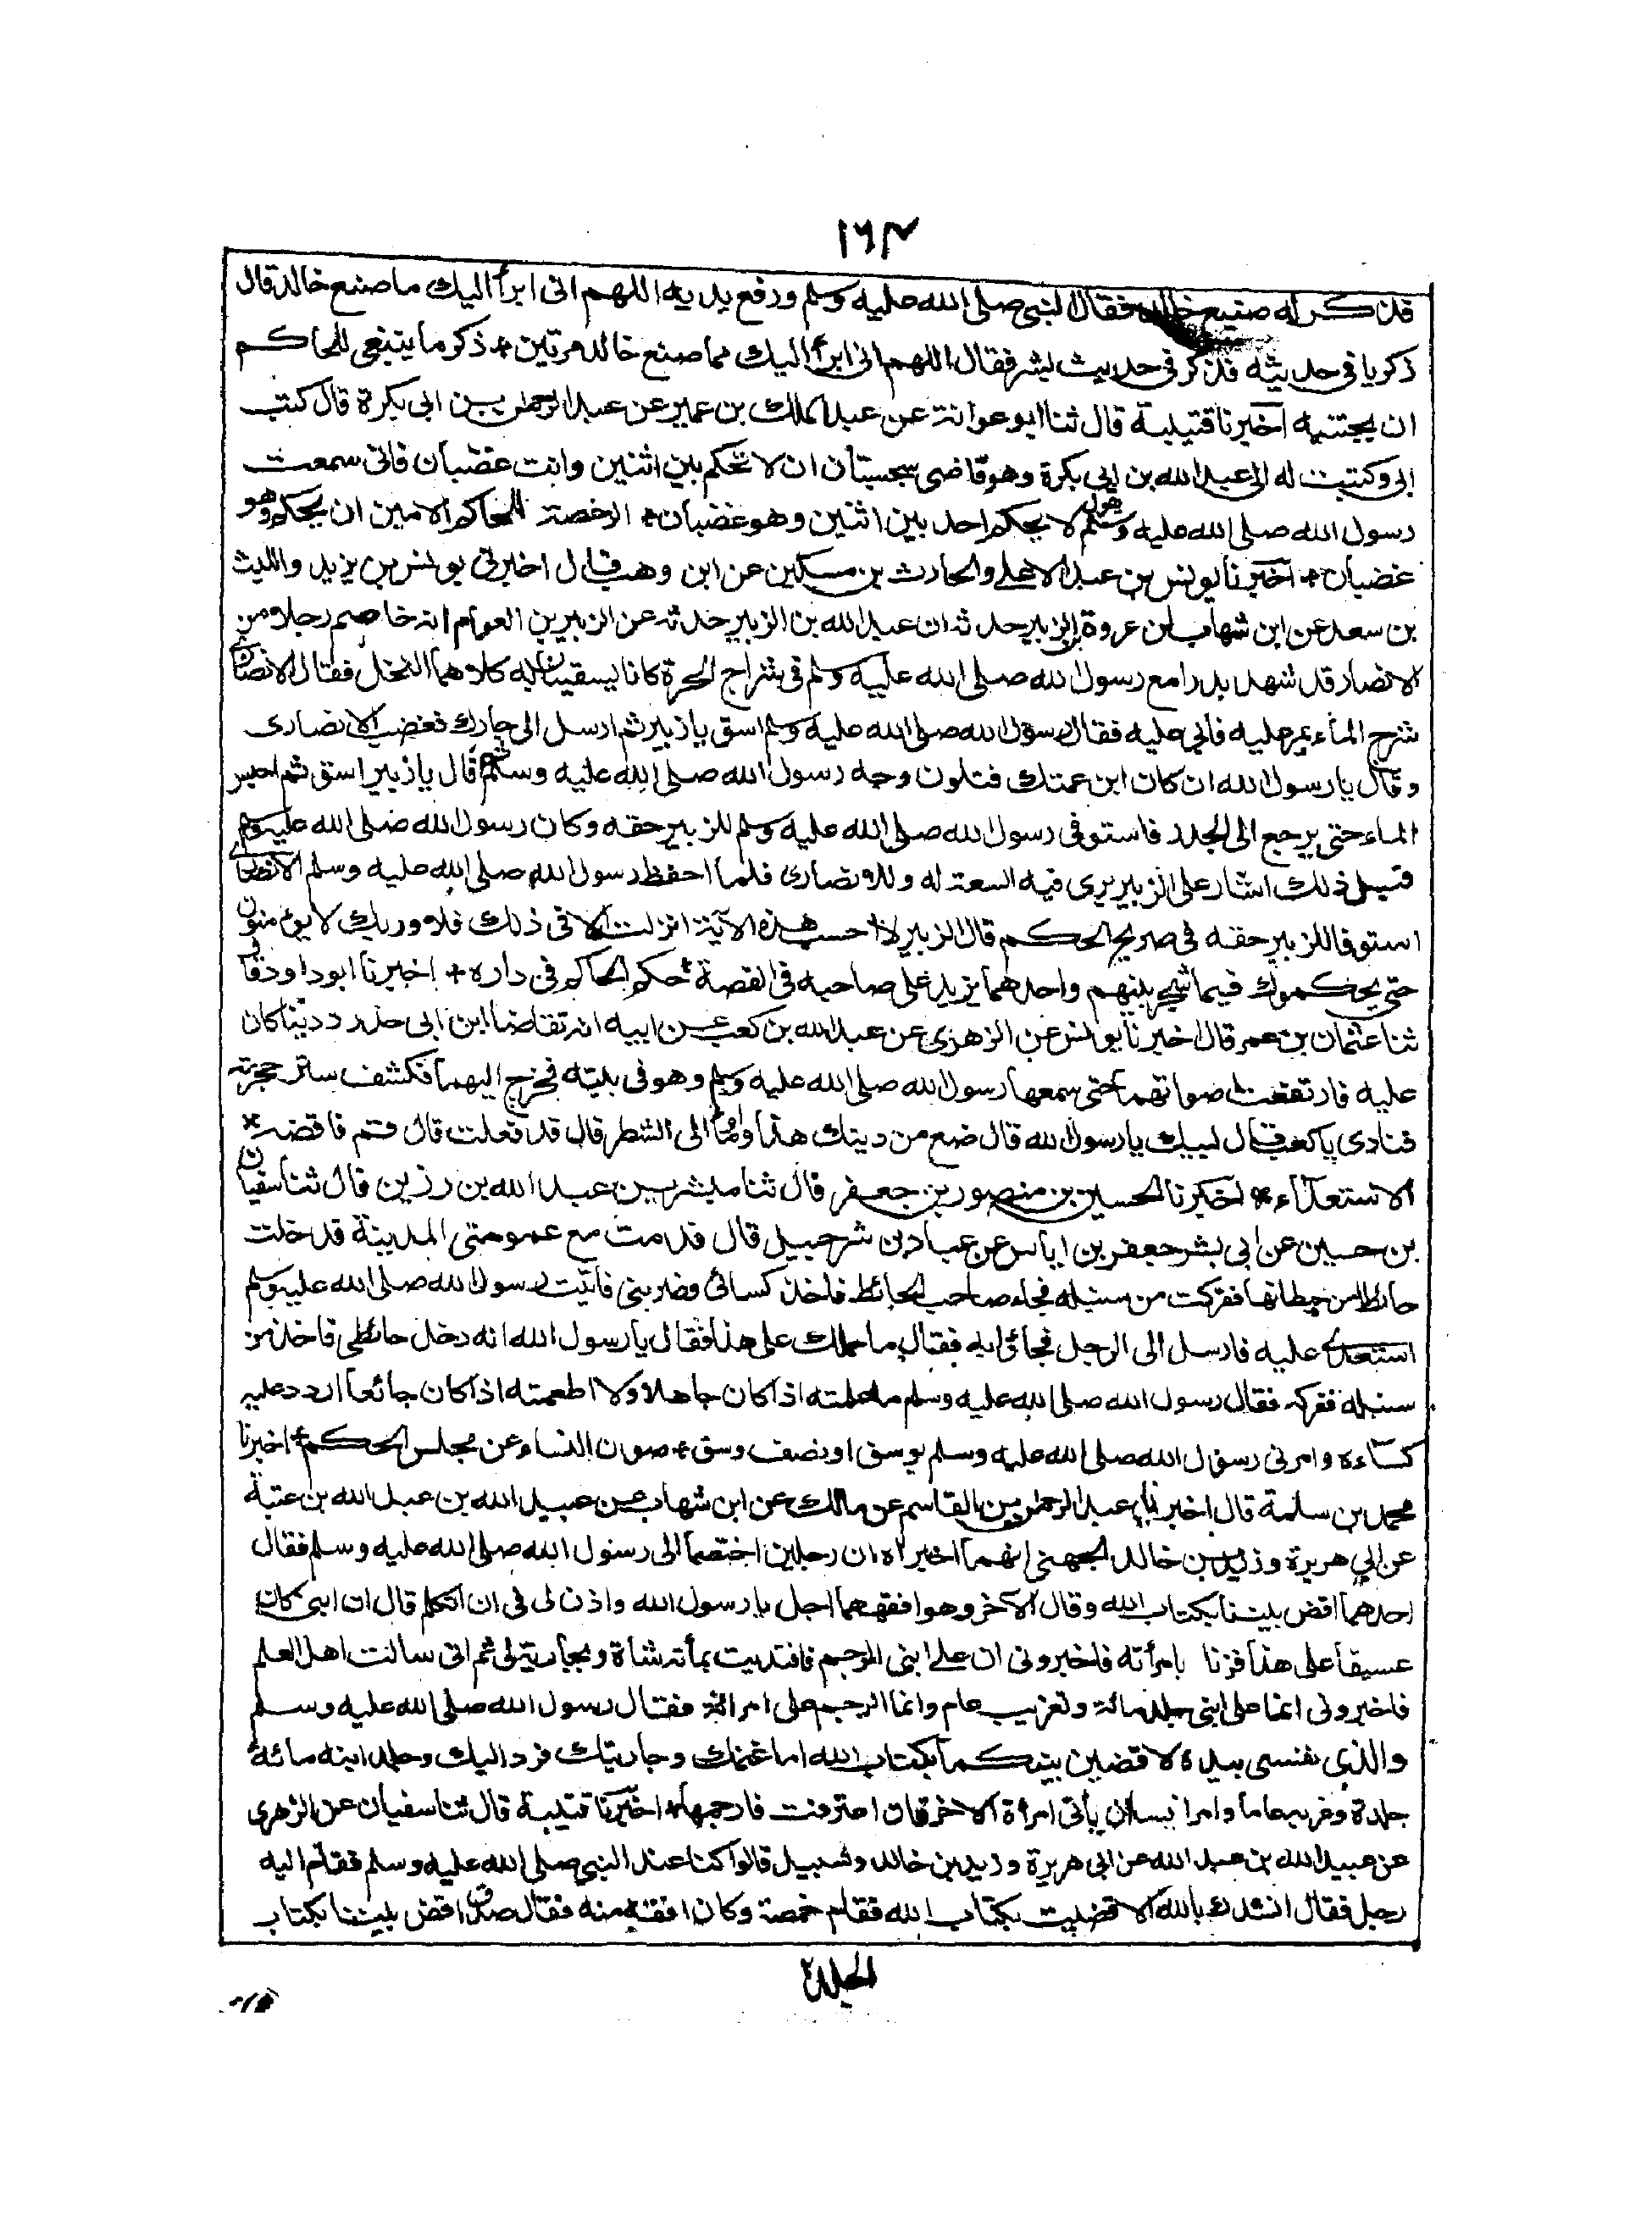 ١٦٣
فذكر له صنيع خالد فقال النبي صلى الله عليه وسلم ورفع يديه اللهم انى ابرأ اليك ما صنع خالد قال
ذكريا فى حديثه فذكر فى حديث بشر فقال اللهم انى ابرأ اليك مما صنع خالد مرتين * ذكر ما ينبغى للحاكم
ان يجتنبه اخبرنا قتيبة قال ثنا ابو عوانة عن عبد الملك بن عمير عن عبد الرحمن بن ابى بكرة قال كتب
ابى وكتبت له الى عبيد الله بن ابى بكرة وهو قاضى سجستان ان لا تحكم بين اثنين وانت غضبان فانى سمعت
رسول الله صلى الله عليه وسلم يقول لا يحكم احد بين اثنين وهو غضبان * الرخصة للحاكم الامين ان يحكم وهو
غضبان * اخبرنا يونس بن عبد الاعلى والحارث بن مسكين عن ابن وهب قال اخبرنى يونس بن يزيد والليث
بن سعد عن ابن شهاب ان عروة بن الزبير حدثه ان عبد الله بن الزبير حدثه عن الزبير بن العوام انه خاصم رجلا من
الانصار قد شهد بدرا مع رسول الله صلى الله عليه وسلم فى شراج الحرة كانا يسقيان به كلاهما النخل فقال الانصارى
شرج الماء يمر عليه فابى عليه فقال رسول الله صلى الله عليه وسلم اسق يا زبير ثم ارسل الى جارك فغضب الانصارى
وقال يا رسول الله ان كان ابن عمتك فتلون وجه رسول الله صلى الله عليه وسلم ثم قال يا زبير اسق ثم احبس
الماء حتى يرجع الى الجدر فاستوفى رسول الله صلى الله عليه وسلم للزبير حقه وكان رسول الله صلى الله عليه وسلم
قبل ذلك اشار على الزبير برى فيه السعة له وللانصارى فلما احفظ رسول الله صلى الله عليه وسلم الانصارى
استوفى للزبير حقه فى صريح الحكم قال الزبير لا احسب هذه الآية انزلت الا فى ذلك فلا وربك لا يؤمنون
حتى يحكموك فيما شجر بينهم واحدهما يزيد على صاحبه فى القصة * حكم الحاكم فى داره * اخبرنا ابو داود قال
ثنا عثمان بن عمر قال اخبرنا يونس عن الزهرى عن عبد الله بن كعب عن ابيه انه تقاضا ابن ابى حدرد دينا كان
عليه فارتفعت اصواتهما حتى سمعها رسول الله صلى الله عليه وسلم وهو فى بيته فخرج اليهما فكشف ستر حجرته
فنادى يا كعب قال لبيك يا رسول الله قال ضع من دينك هذا واومأ الى الشطر قال قد فعلت قال قم فاقضه *
الاستعداء * اخبرنا الحسين بن منصور بن جعفر قال ثنا مبشر بن عبد الله بن رزين قال ثنا سفيان
بن حسين عن ابى بشر جعفر بن اياس عن عباد بن شرحبيل قال قدمت مع عمومتى المدينة فدخلت
حائطا من حيطانها ففركت من سنبله فجاء صاحب الحائط فاخذ كسائى وضربنى فاتيت رسول الله صلى الله عليه وسلم
استعدى عليه فارسل الى الرجل فجائ به فقال ما حملك على هذا فقال يا رسول الله انه دخل حائطى فاخذ من
سنبله ففركه فقال رسول الله صلى الله عليه وسلم ما علمته اذ كان جاهلا ولا اطعمته اذ كان جائعا اردد عليه
كساءه وامرنى رسول الله صلى الله عليه وسلم بوسق او نصف وسق * صون النساء عن مجلس الحكم * اخبرنا
محمد بن سلمة قال اخبرنا عبد الرحمن بن القاسم عن مالك عن ابن شهاب عن عبيد الله بن عبد الله بن عتبة
عن ابى هريرة وزيد بن خالد الجهنى انهما اخبراه ان رجلين اختصما الى رسول الله صلى الله عليه وسلم فقال
احدهما اقض بيننا بكتاب الله وقال الآخر وهو افقههما اجل يا رسول الله واذن لى فى ان اتكلم قال ان ابنى كان
عسيفا على هذا فزنا بامرأته فاخبرونى ان على ابنى الرجم فافتديت بمأته شاة وبجارية لى ثم انى سالت اهل العلم
فاخبرونى انما على ابنى جلد مائة وتغريب عام وانما الرجم على امرأته فقال رسول الله صلى الله عليه وسلم
والذى نفسى بيده لاقضين بينكما بكتاب الله اما غنمك وجاريتك فرد اليك وجلد ابنه مائة
جلدة وغربه عاما وامر انيسا ان يأتى امرأة الآخر فان اعترفت فارجمها * اخبرنا قتيبة قال ثنا سفيان عن الزهرى
عن عبيد الله بن عبد الله عن ابى هريرة وزيد بن خالد وشبيل قالوا كنا عند النبى صلى الله عليه وسلم فقام اليه
رجل فقال انشدك بالله الا قضيت بكتاب الله فقام خصمة وكان افقه منه فقال صدق اقض بيننا بكتاب
الجلد٢